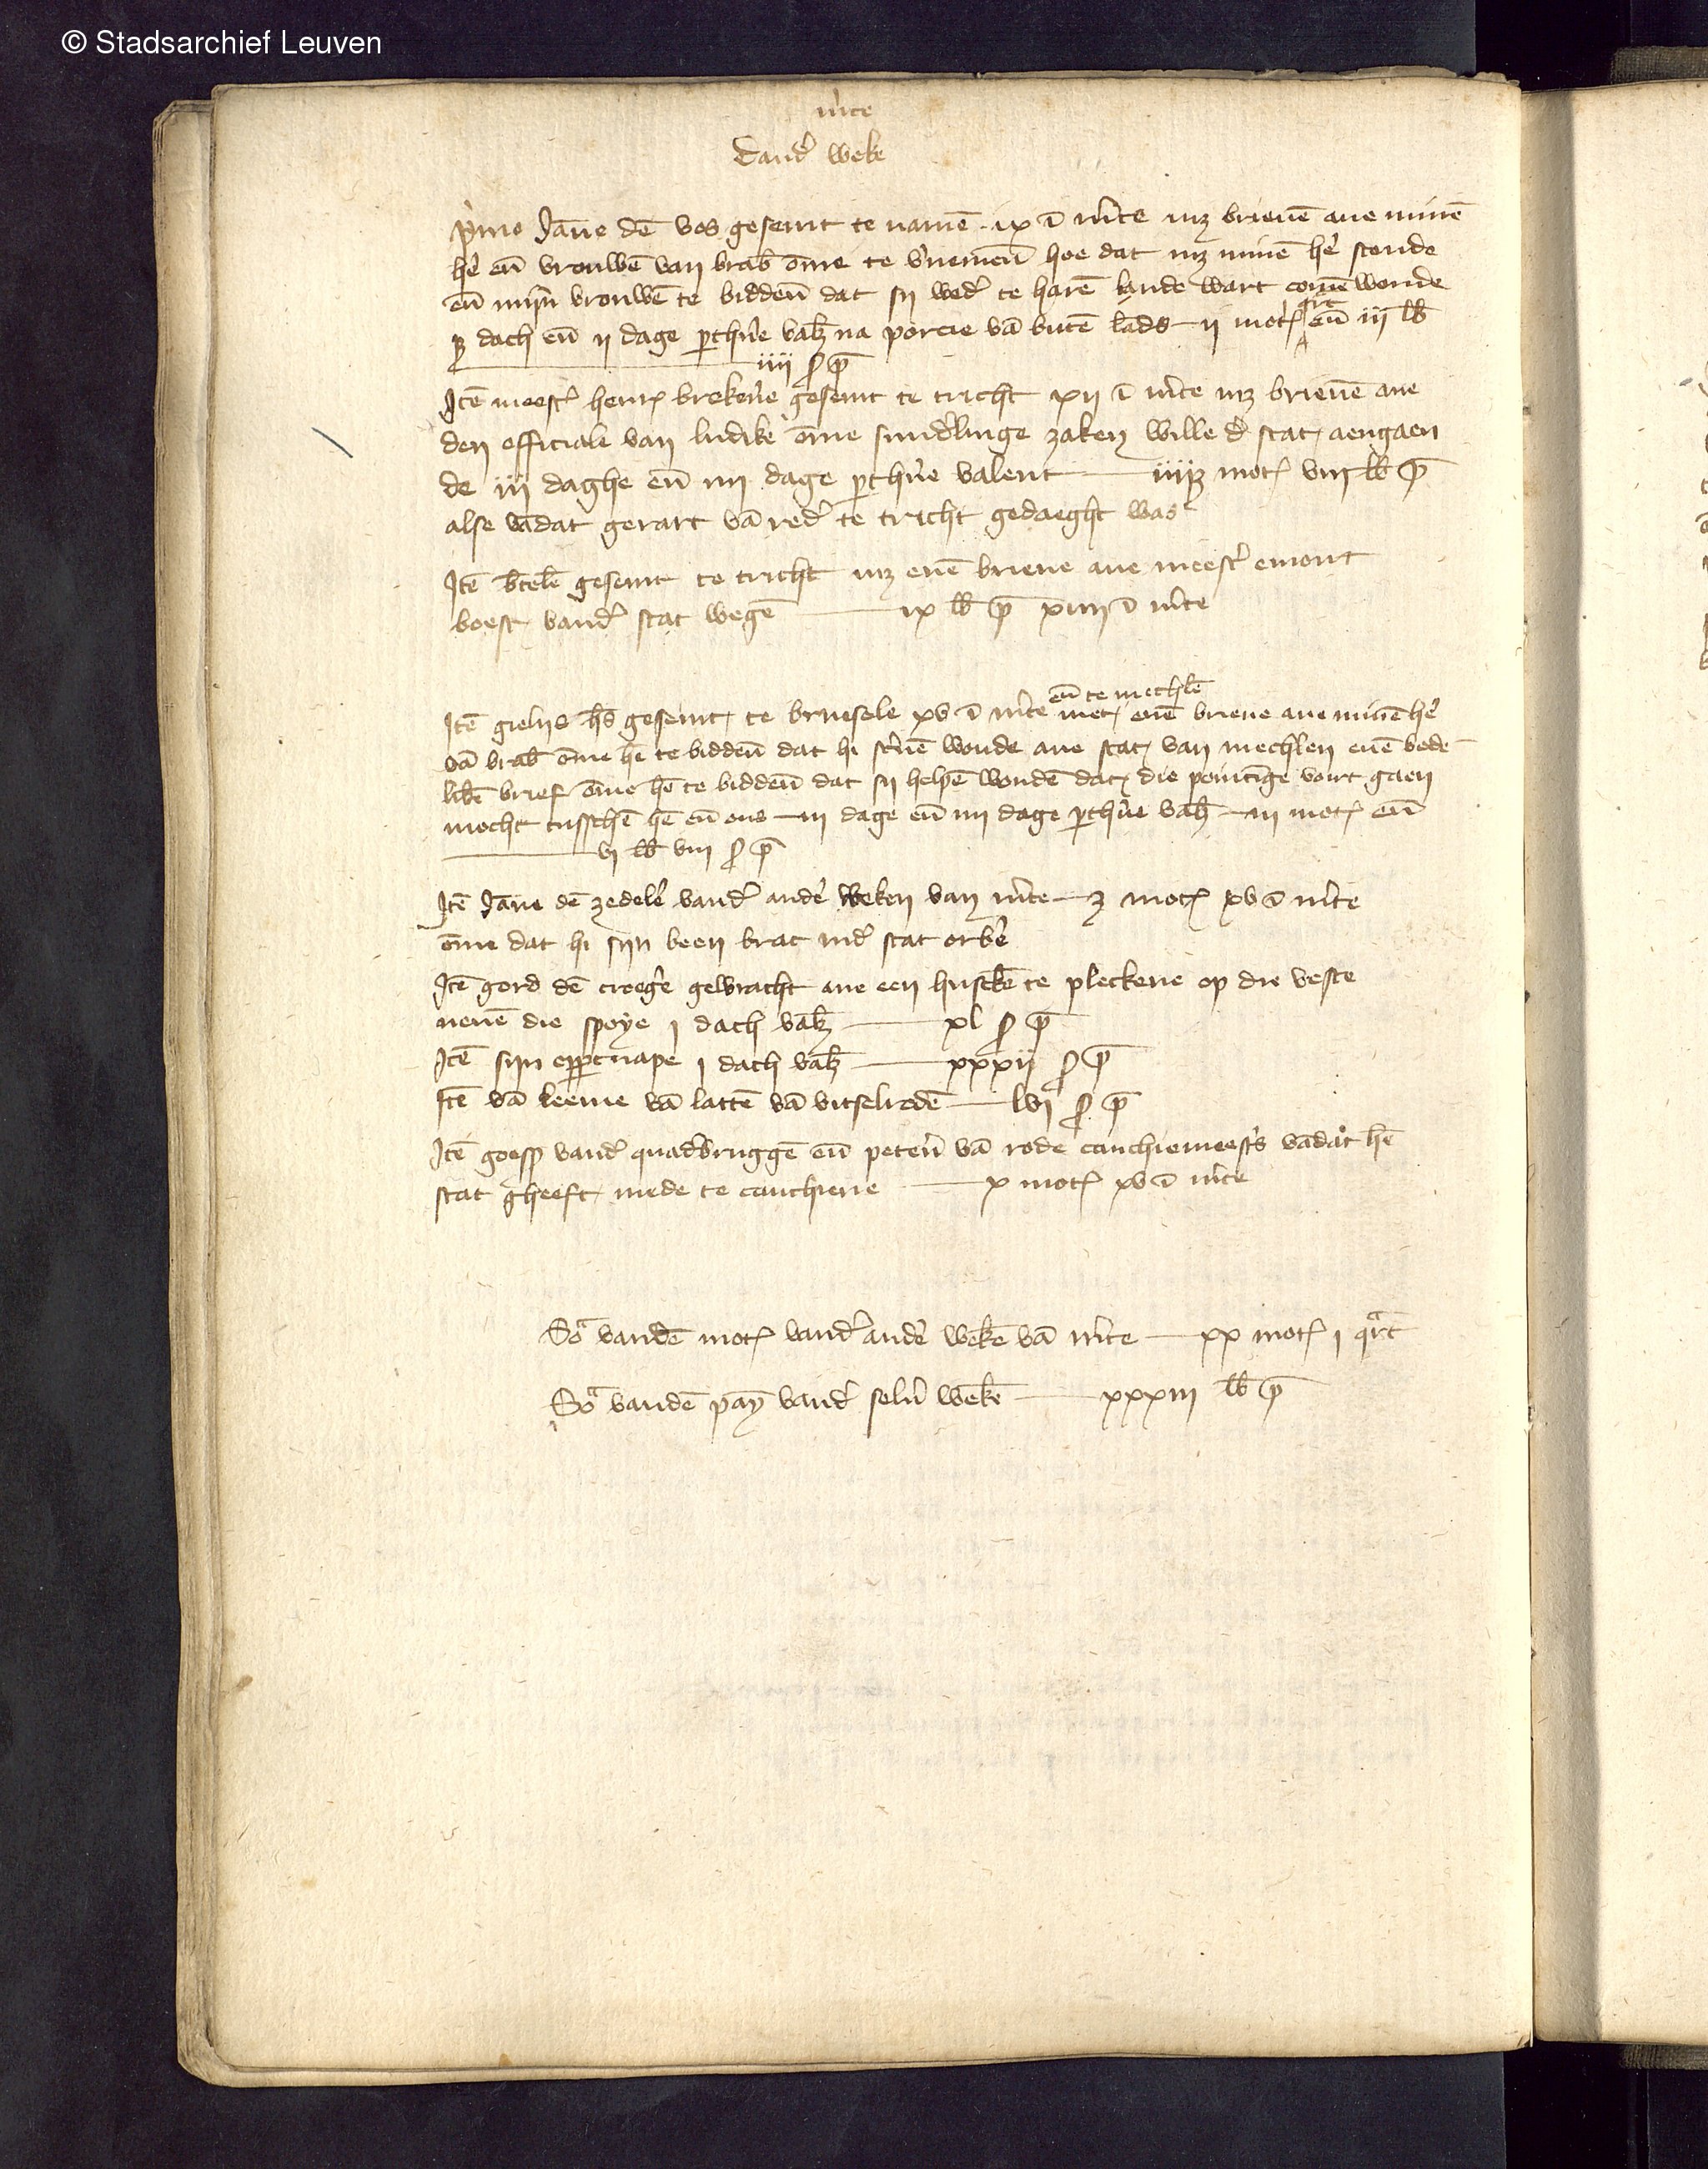 © Stadsarchief Leuven
m̄rte
Dand̄ weke
p̄mo Jāne dē vos gesent te namē ix ī m̄rte mz brieuē ane minē
hē en̄ vrouwē van brab ōme te v̄nemen̄ hoe dat mz minē hē stonde
en̄ mijn̄ vrouwē te bidden̄ dat sy wed̄ te harē lande wart comē wonde
dach en̄ ij dage p̄thūe valz na porcie vā butē lāds ij mot qrt en̄ iij lb
iiij p̄
Itē meest̄ henr brekēre gesent te tricht xij ī m̄rte mz brieuē ane
den officiale van ludike ōme sund̄linge zaken wille d̄ stat aengaen
de iij daghe en̄ iiij dage p̄thūe valent mot viij lb p̄
alse vādat gerart vā red̄ te tricht gedaeght was
Itē gesent te tricht mz enē brieue ane meest̄ emont
boest vand̄ stat wegē ix lb p̄ xiiij ī m̄rte
en̄ te mechelē
Itē gielijs h̄s gesent te bruesele xv ī m̄rte met enē brieue ane minē hē
vā brab ōme hē te bidden̄ dat hi sc̄uē wonde ane stat van mechlen enē bede
likē brief ōme hē te bidden̄ dat sy helpē wondē dat die pointīge voirt gaen
mocht tusschē hē en̄ ons iij dage en̄ iiij dage p̄thūe valz iij mot en̄
vj lb viij p̄
Itē Jāne dē zedelē vand̄ andē weken van m̄rte z mot xv ī m̄rte
ōme dat hi sijn been brac ind̄ stat orbē
Itē gord dē croegē gewracht ane een husekē te pleckene op die veste
neuē die spoye j dach valz xl p̄
Itē sijn opp̄cnape j dach valz xxxij p̄
Itē vā leeme vā lattē vā vitselrodē lvj p̄
Itē goesp vand̄ quad̄bruggē en̄ peter̄ vā rode canchiemeest̄s vādat hē
stat gheeft mede te canchiene x mot xv ī m̄rte
Sō vandē mot vand̄ andē wekē vā m̄rte xx mot j qrt
Sō vandē pay vand̄ selū wekē xxxiij lb p̄